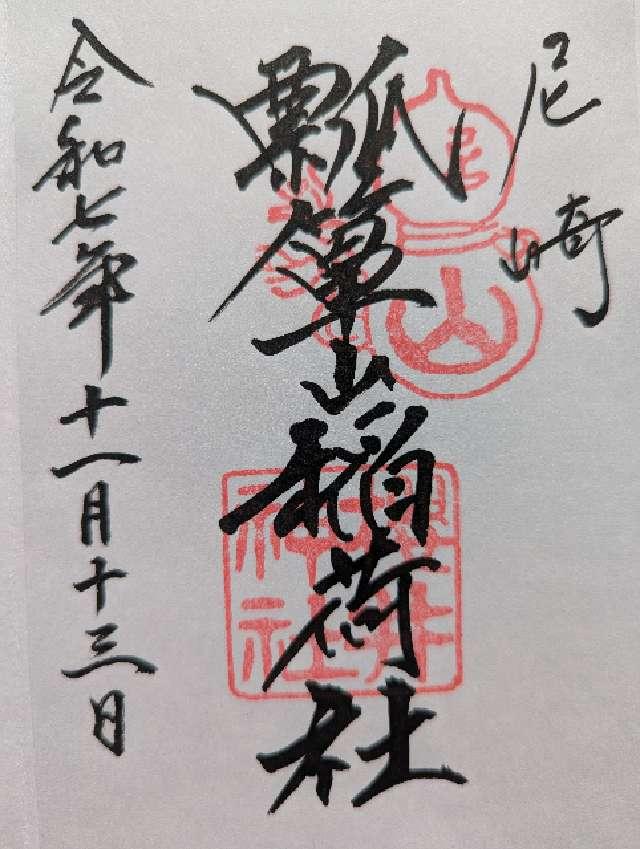 尼崎
瓢箪山稲荷社
櫻井
神社
令和七年十一月十三日